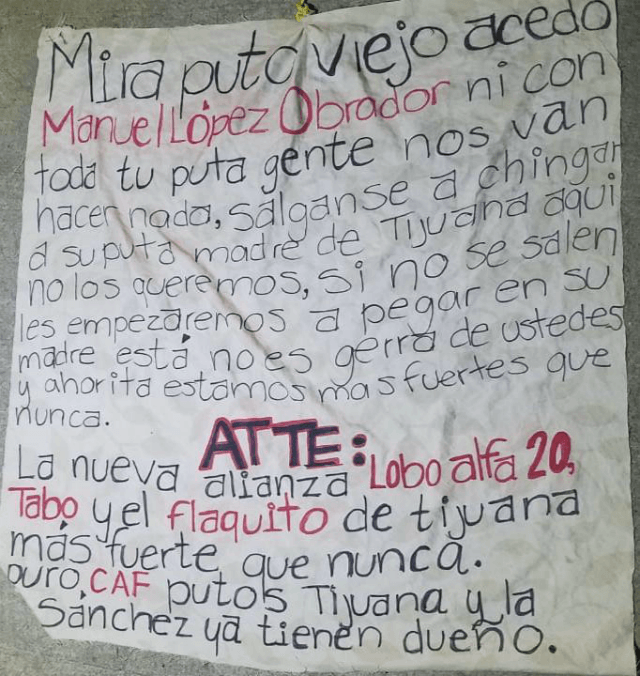 Mira puto viejo acedo
Manuel López Obrador ni con
toda tu puta gente nos van
hacer nada, sálganse a chingar
a su puta madre de Tijuana aqui
no los queremos, si no se salen
les empezaremos a pegar en su
madre está no es gerra de ustedes
y ahorita estamos mas fuertes que
nunca.
ATTE:
La nueva alianza Lobo alfa 20,
Tabo y el flaquito de tijuana
más fuerte que nunca.
puro CAF putos Tijuana y la
Sánchez ya tienen dueño.